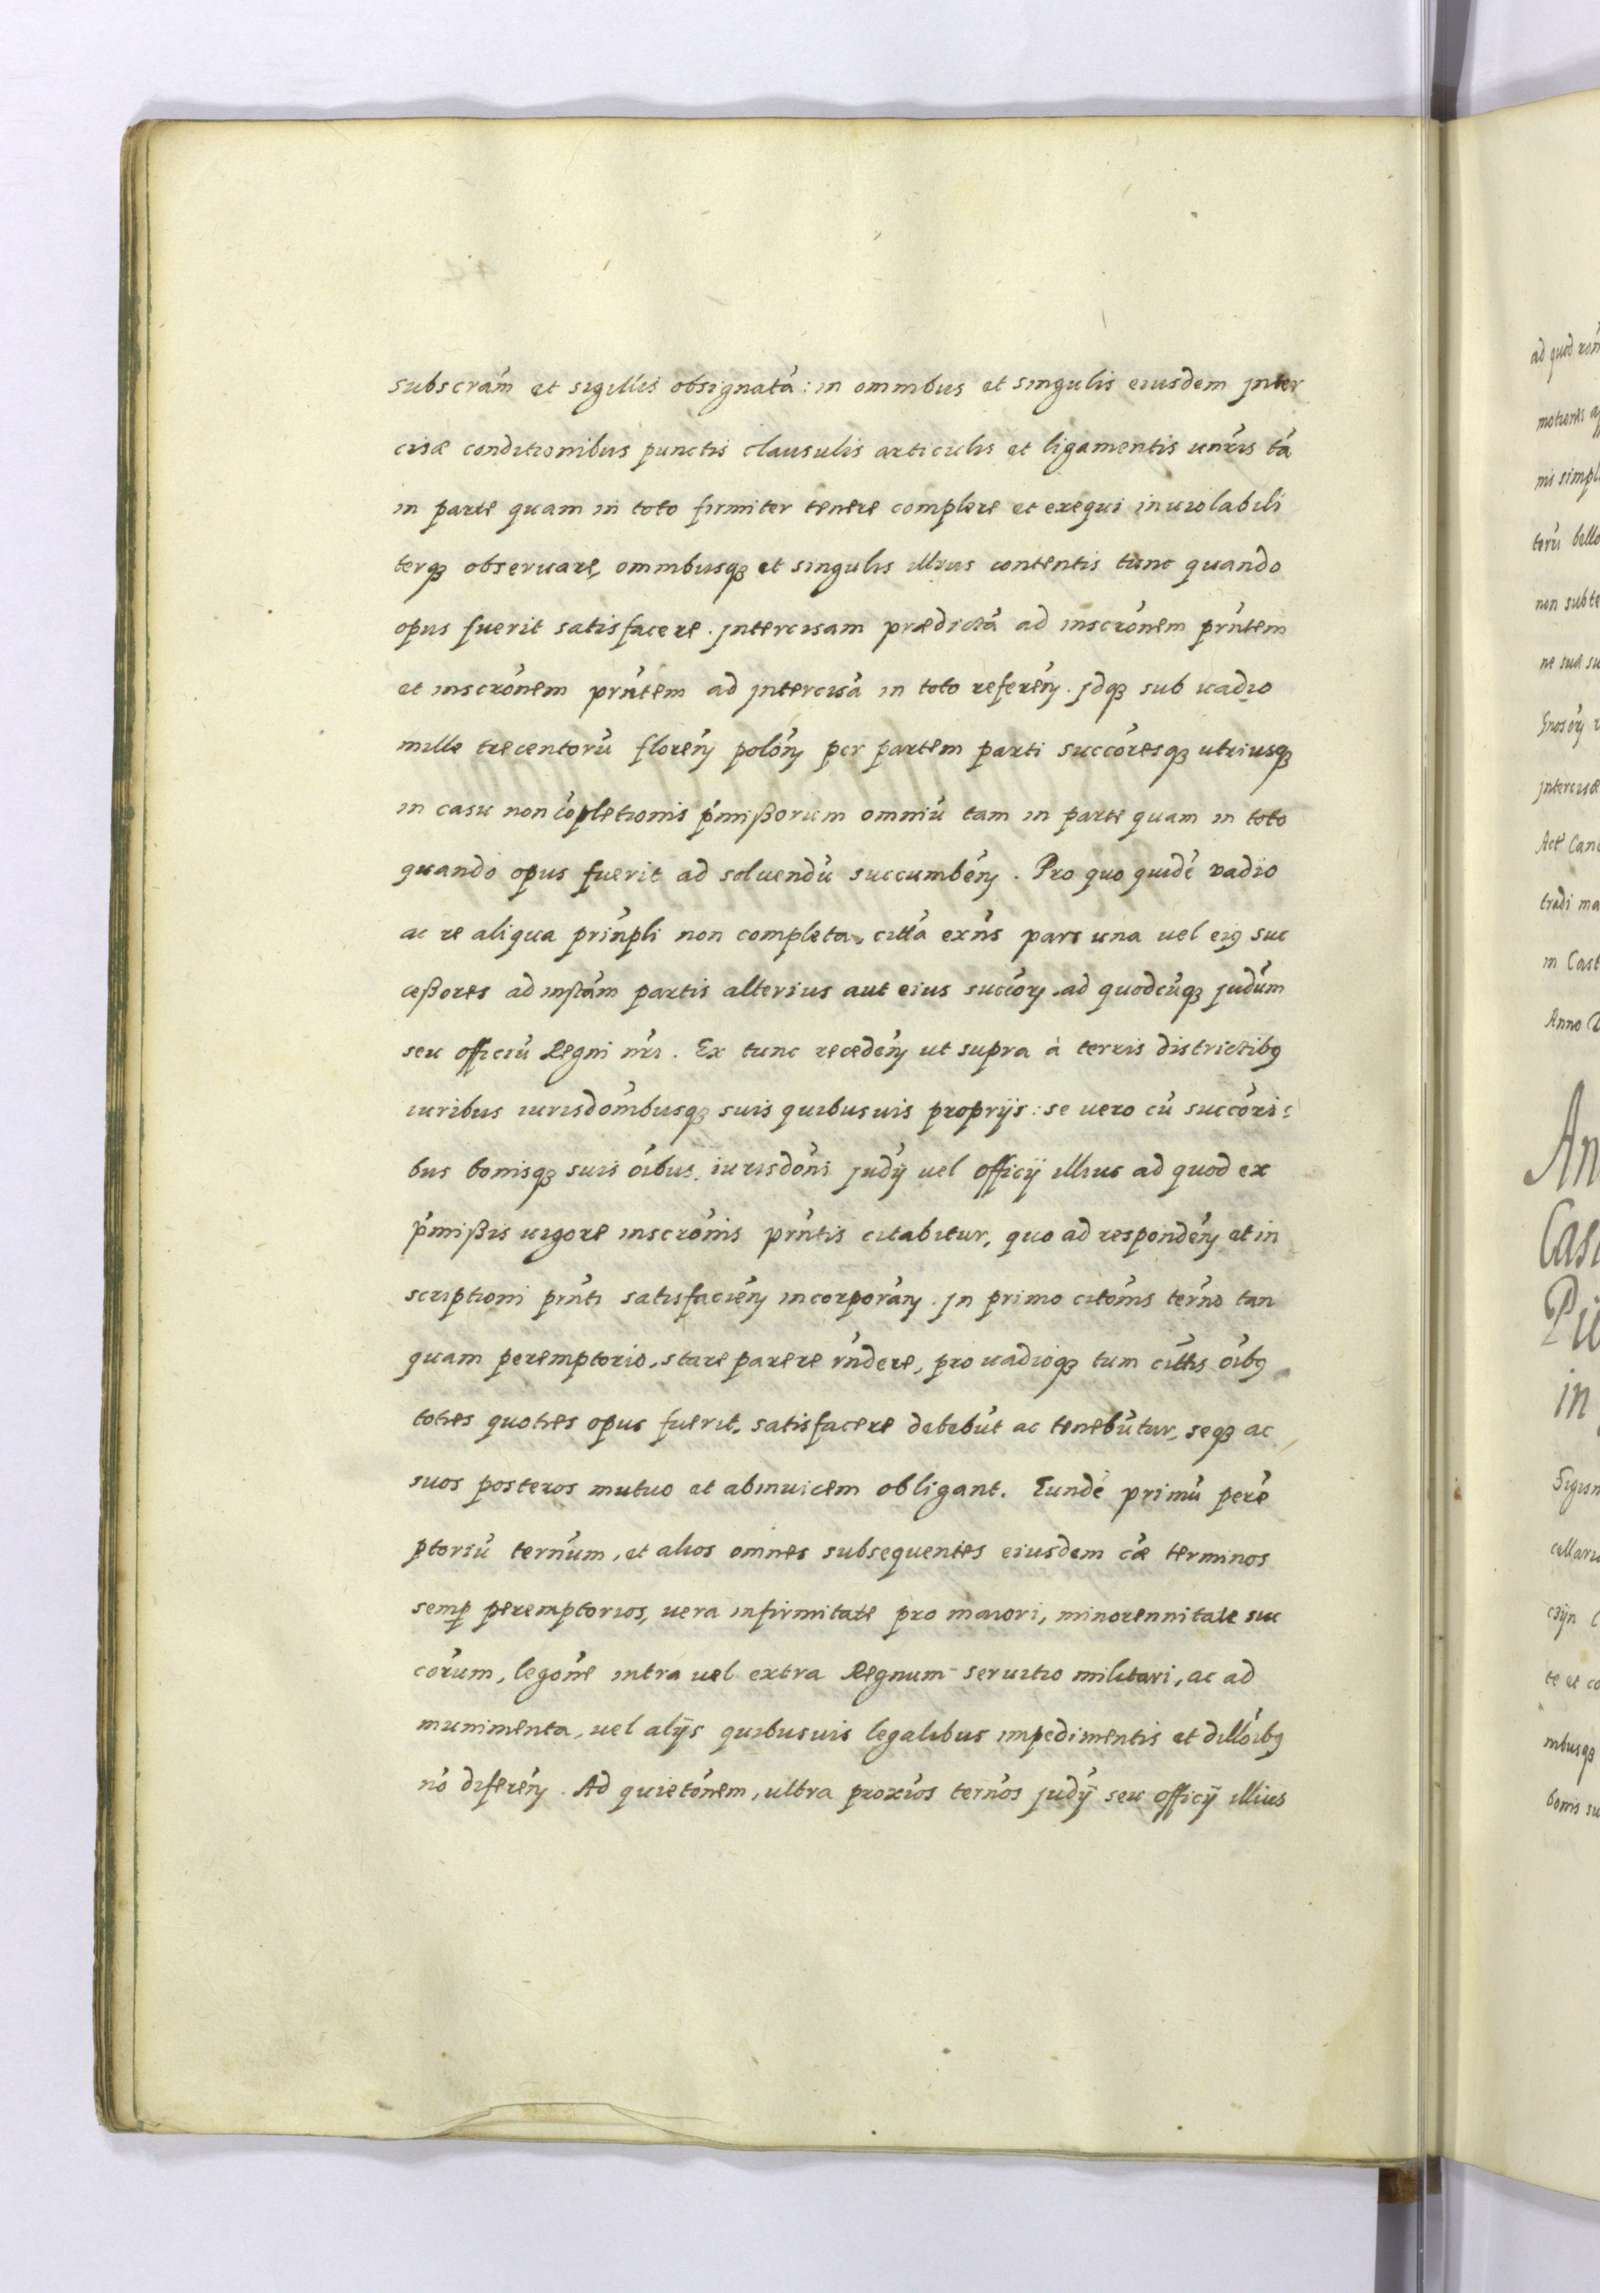 subscrám et sigillis obsignatá: in omnibus et singulis eiusdem inter
cisæ conditionibus punctis clausulis articulis et ligamentis uńris tá
in parte quam in toto firmiter tenere complere et exequi inuiolabili
terq₃ obseruare, omnibusq₃ et singulis illius contentis tunc quando
opus fuerit satisfacere. jntercisam prædictá ad inscrónem prńtem
et inscrónem prńtem ad jntercisá in toto referéń. jdq₃ sub uadio
mille trecentorú floréń polóń per partem parti succóresq₃ utriusq₃
in casu non cópletionis ṕmißorum omniú tam in parte quam in toto
quando opus fuerit ad soluendú succumbéń. Pro quo quidé vadio
ac re aliqua prinṕli non completa, cittá exńs pars una uel eig suc
ceßores ad instám partis alterius aut eius succóry ad quodcúq₃ judúm
seu officiú Regni nŕi. Ex tunc recedéń ut supra à terris districtibg
iuribus iurisdómbusq₃ suis quibusuis proprijs: se uero cú succóri:
bus bonisq₃ suis óibus, iurisdóni judý uel officij illius ad quod ex
ṕmißis uigore inscrónis prńtis citabitur, quo ad respondéń et in
scriptioni prńti satisfaciéń incorporáń. jn primo citónis térno tan
quam peremptorio, stare parere ŕndere, pro uadioq₃ tum cíttis óibg
toties quoties opus fuerit, satisfacere debebút ac tenebútur, seq₃ ac
suos posteros mutuo et abinuicem obligant. Eundé primú peré
ptoriú ternúm, et alios omnes subsequentes eiusdem cáe terminos
semp̱ peremptorios, uera infirmitate pro maiori, minorennitate suc
córum, legóne intra uel extra Regnum seruitio militari, ac ad
munimenta, uel alijs quibusuis legalibus impedimentis et dillóibg
nó diferéń. Ad quietónem, ultra proxíos ternós judý seu officij illius
ad quod
mis simpl
non subte
ne suá su
m Cast
Anno
An
Cas
in
te et co
mbusq₃
bonis su